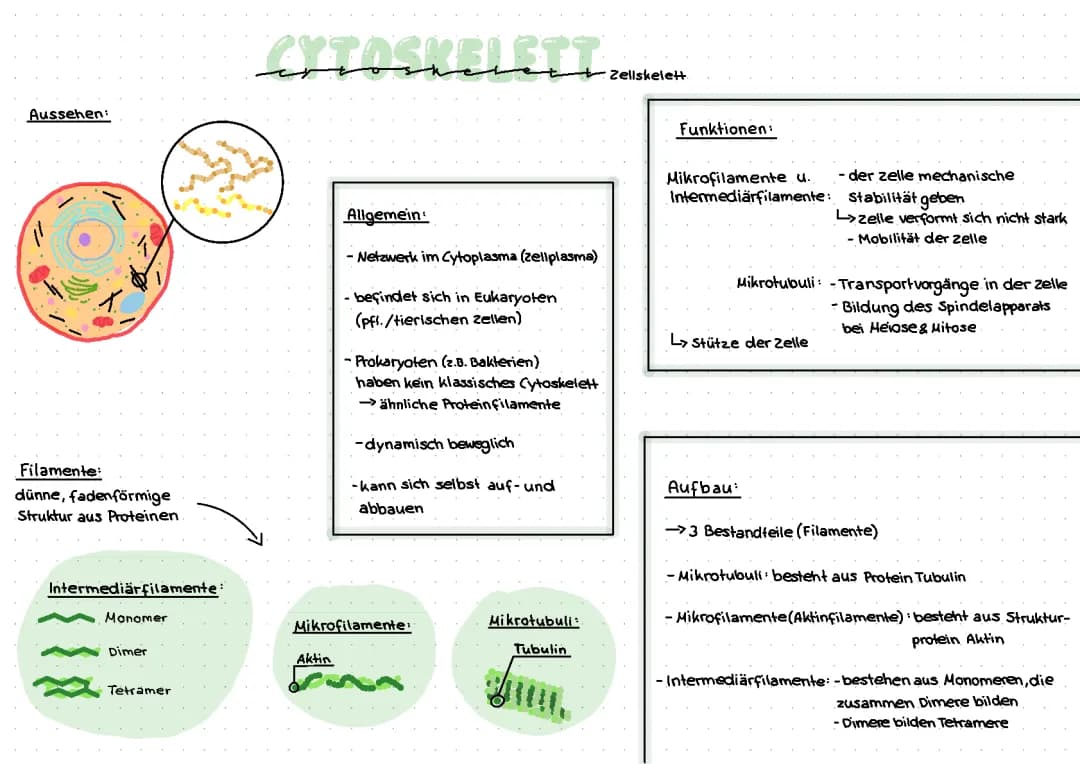 CYTOSKELETT
cytoskelett
Zellskelett
Aussehen:
Allgemein:
- Netzwerk im Cytoplasma (Zellplasma)
- befindet sich in Eukaryoten
(pfl./tierischen Zellen)
- Prokaryoten (z.B. Bakterien)
haben kein klassisches Cytoskelett
→ ähnliche Proteinfilamente
- dynamisch beweglich
- kann sich selbst auf- und
abbauen
Funktionen:
Mikrofilamente u.
Intermediärfilamente:
- der Zelle mechanische
Stabilität geben
↳ Zelle verformt sich nicht stark
- Mobilität der Zelle
Mikrotubuli: - Transportvorgänge in der Zelle
- Bildung des Spindelapparats
bei Meiose & Mitose
↳ Stütze der Zelle
Filamente:
dünne, fadenförmige
Struktur aus Proteinen
Intermediärfilamente:
Monomer
Dimer
Tetramer
Mikrofilamente:
Aktin
Mikrotubuli:
Tubulin
Aufbau:
→ 3 Bestandteile (Filamente)
- Mikrotubuli: besteht aus Protein Tubulin
- Mikrofilamente (Aktinfilamente): besteht aus Struktur-
protein Aktin
- Intermediärfilamente: - bestehen aus Monomeren, die
zusammen Dimere bilden
- Dimere bilden Tetramere